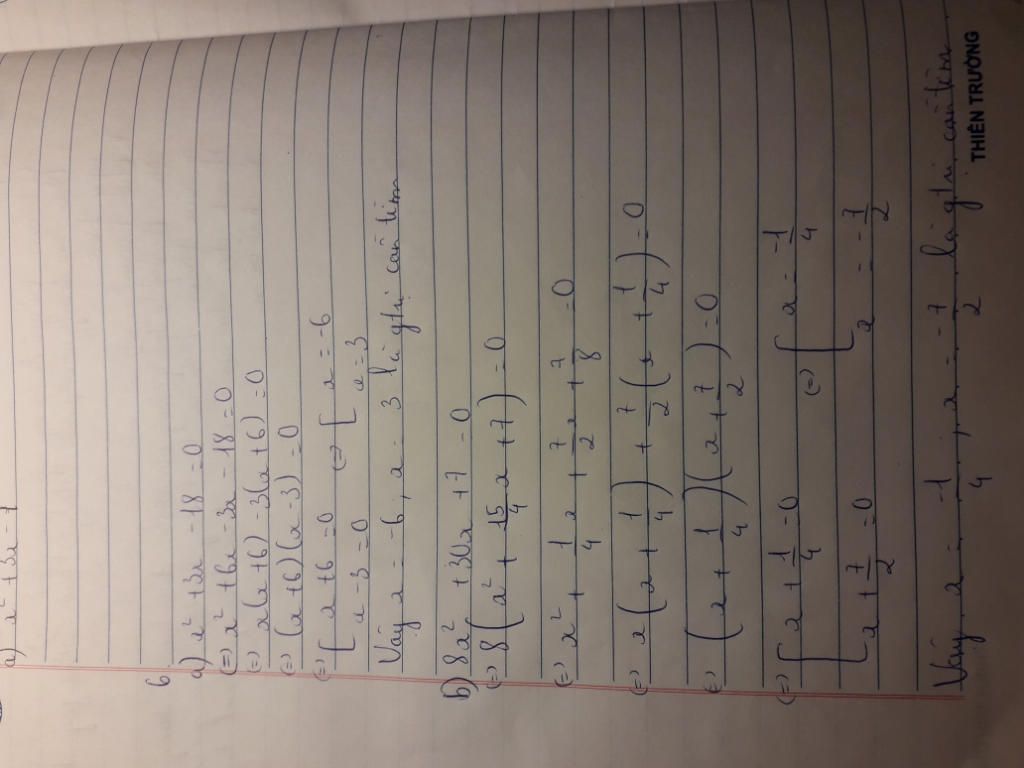 a) x² + 3x - 7
6
a) x² + 3x - 18 = 0
(=) x² + 6x - 3x - 18 = 0
(=) x(x + 6) - 3(x + 6) = 0
(=) (x + 6)(x - 3) = 0
(=) [ x + 6 = 0 (=) [ x = -6
x - 3 = 0 x = 3
Vậy x = -6, x = 3 là gtrị cần tìm
b) 8x² + 30x + 7 = 0
(=) 8(x² + 15/4 x + 7) = 0
(=) x² + 1/4 x + 7/2 x + 7/8 = 0
(=) x(x + 1/4) + 7/2 (x + 1/4) = 0
(=) (x + 1/4)(x + 7/2) = 0
(=) [ x + 1/4 = 0 (=) [ x = -1/4
x + 7/2 = 0 x = -7/2
Vậy x = -1/4 ; x = -7/2 là gtrị cần tìm
THIÊN TRƯỜNG